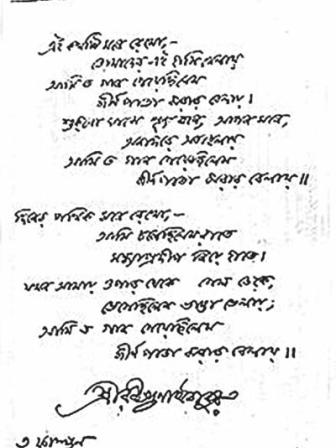 এই কথাটি মনে রেখো,–
তোমাদের এই হাসি খেলায়
আমি ত গান গেয়েছিলেম
জীর্ণ পাতা ঝরার বেলায়।
শুকনো ঘাসে শূন্য বনে, আপন মনে,
অনাদরে অবহেলায়
আমি ত গান গেয়েছিলেম
জীর্ণ পাতা ঝরার বেলায়॥
দিনের পথিক মনে রেখো,–
আমি চলেছিলেম রাতে
সন্ধ্যাপ্রদীপ নিয়ে হাতে।
যখন আমায় ওপার থেকে গেল ডেকে,
ভেসেছিলেম ভাঙা ভেলায়;
আমি ত গান গেয়েছিলেম
জীর্ণ পাতা ঝরার বেলায়॥
শ্রীরবীন্দ্রনাথ ঠাকুর
৩ ফাল্গুন